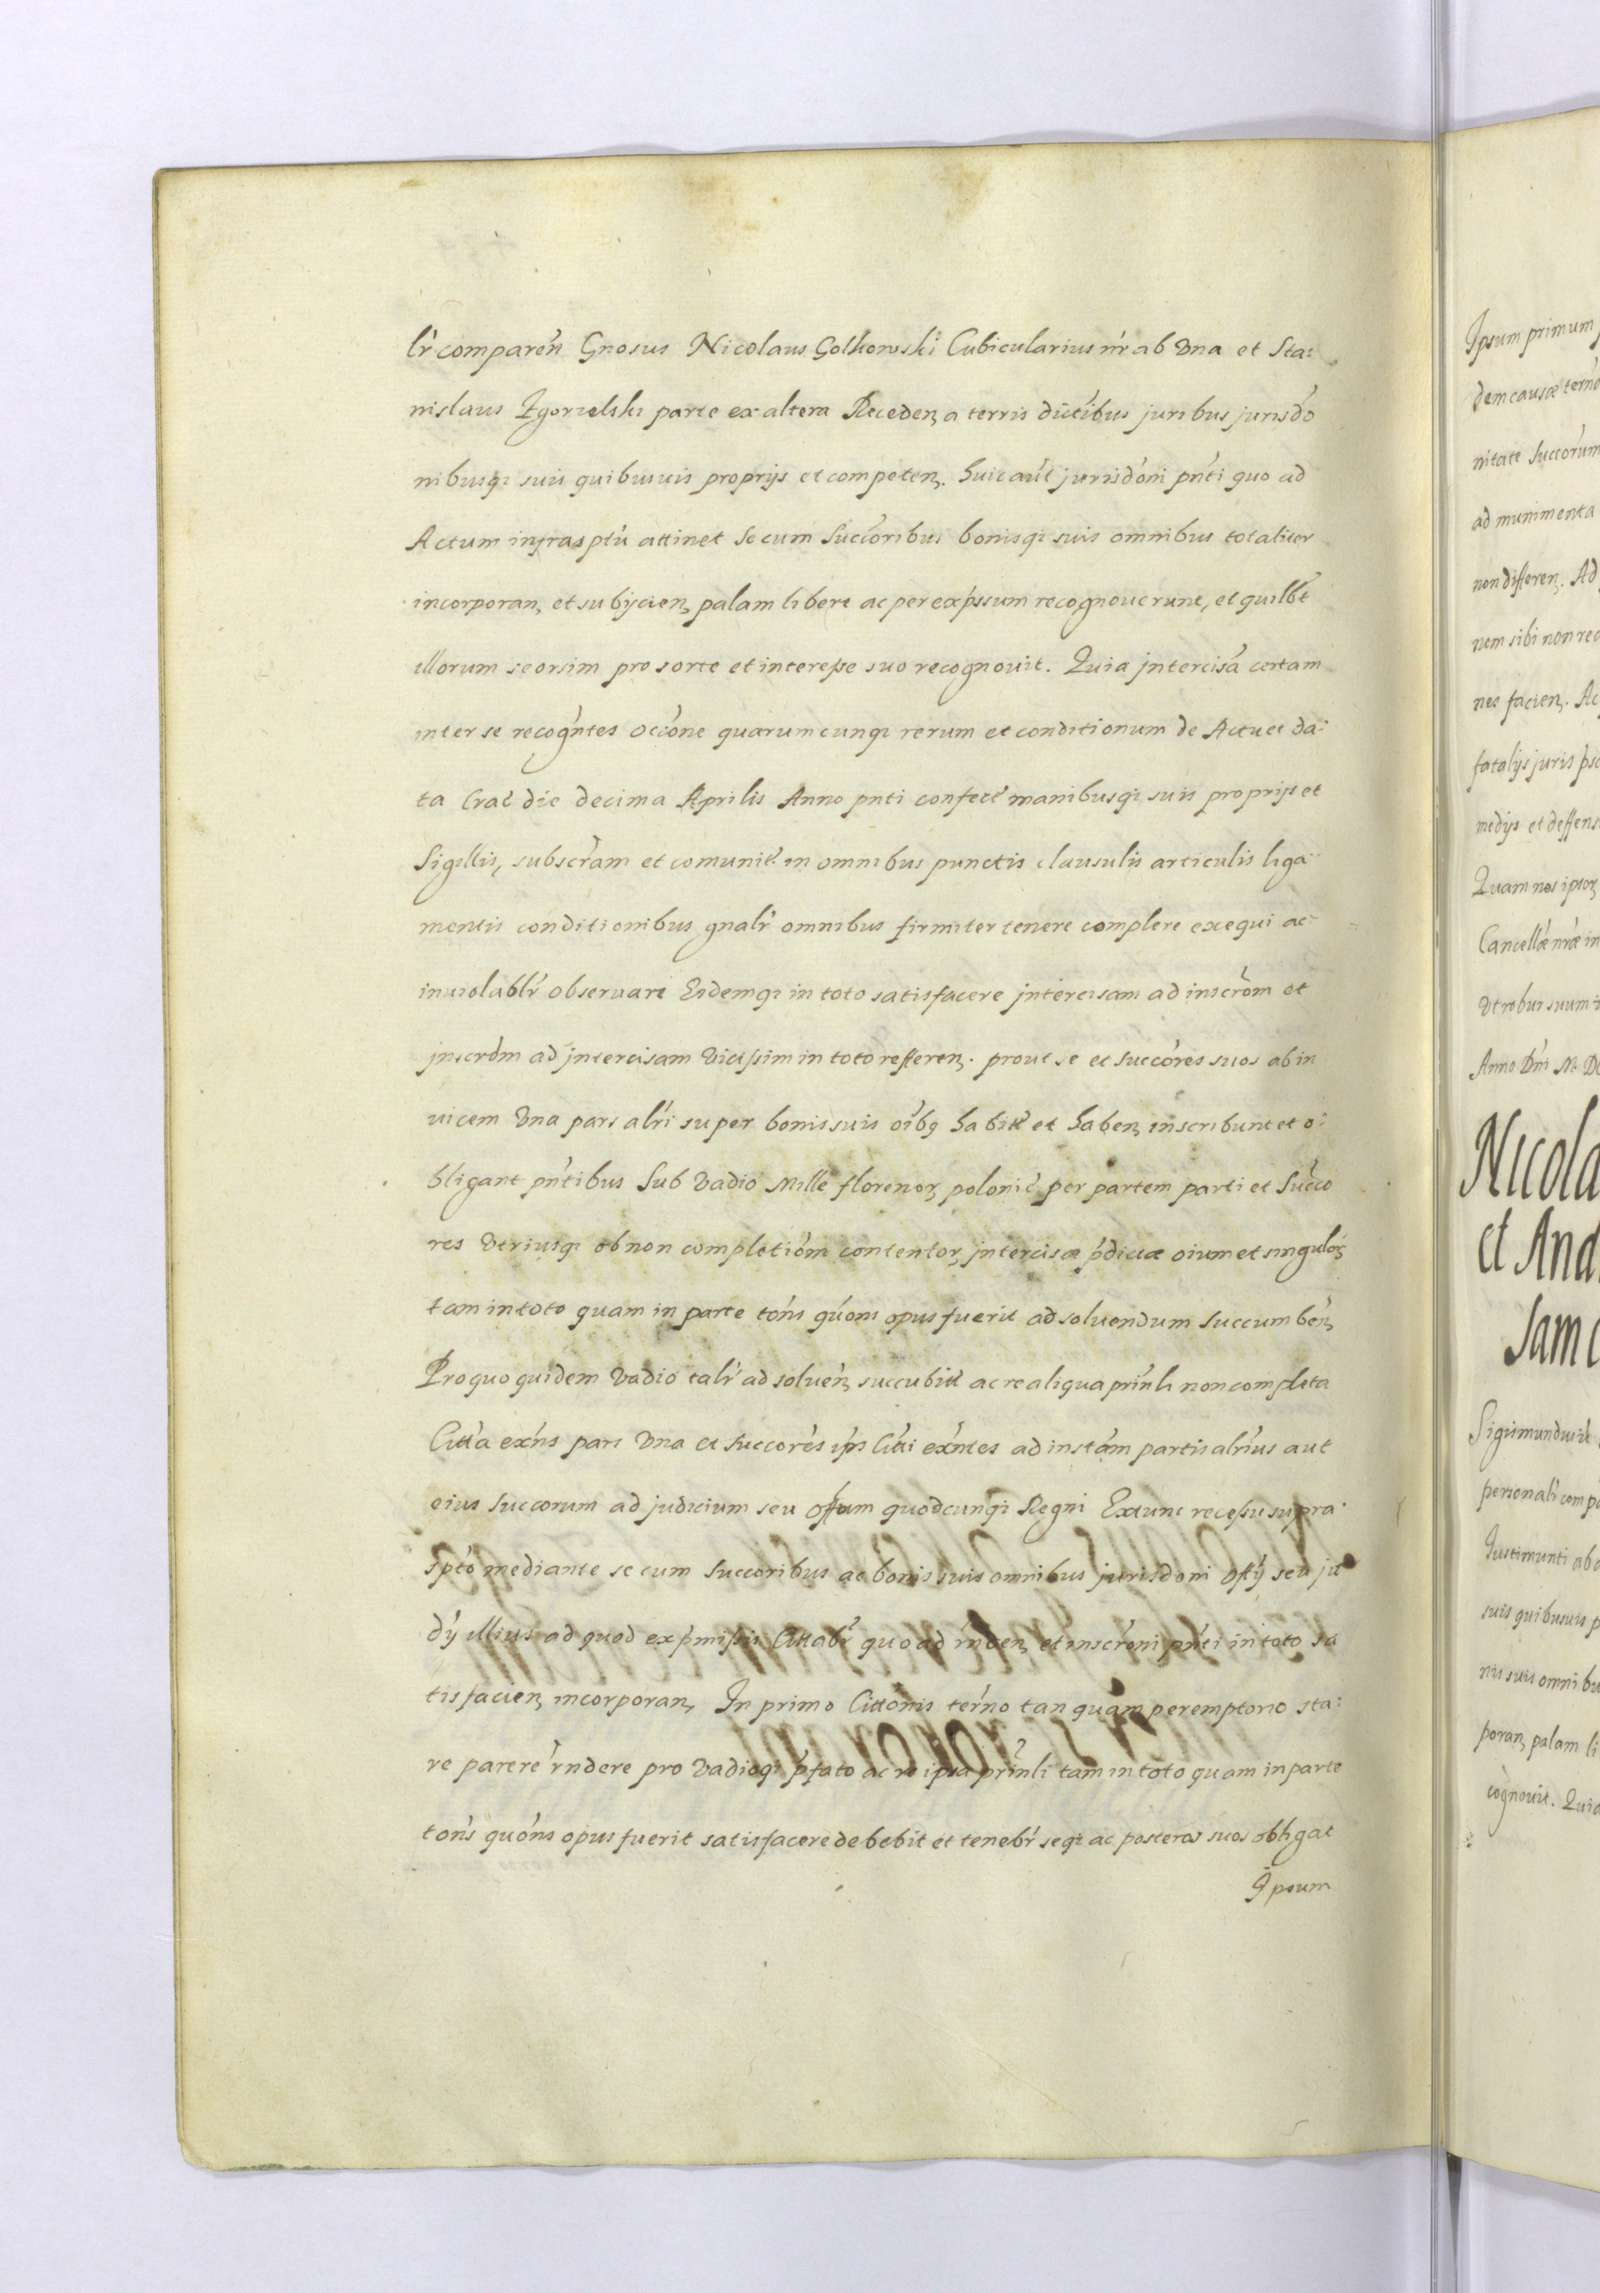 lr comparen Gnosus Nicolaus Golkowski Cubicularius nr ab Una et Sta:
nislaus Zgorzelski parte ex altera Receden a terris dictibus juribus jurisdo
nibusq suis quibusuis proprijs et competen. huic aut jurisdoni pnti quo ad
Actum infrasptu attinet se cum Succoribus bonisq suis omnibus totaliter
incorporan, et subijcien, palam libere ac per expssum recognouerunt, et quilbt
illorum seorsim pro sorte et interesse suo recognouit. Quia jntercisa certam
inter se recogntes occone quarumcunq rerum et conditionum de Actu et da:
ta Crac die decima Aprilis Anno pnti confect manibusq suis proprijs et
Sigillis, subscram et comunit in omnibus punctis clausulis articulis liga
mentis conditionibus gnalr omnibus firmiter tenere complere exequi ac
inuiolablr obseruare Eidemq in toto satisfacere jntercisam ad inscrom et
jnscrom ad jntercisam Vicissim in toto refferen. prout se et succores suos ab in
uicem Una pars alri super bonis suis oibq habit et haben inscribunt et o:
bligant pntibus Sub Vadio Mille florenor, polonic per partem parti et Succo
res Vtriusq ob non completiom contentor, jntercisæ pdictæ oium et singulor,
tam in toto quam in parte tons quons opus fuerit ad soluendum succumben,
Pro quo quidem Vadio talr ad soluen, succubitt ac re aliqua prinli non completa
Citta exns pars Una et succores ips Citti exntes ad instam partis alrius aut
eius succorum ad judicium seu offum quodcunq Regni Extunc recessu supra
spto mediante se cum succoribus ac bonis suis omnibus jurisdoni offij seu ju
dij illius ad quod ex pmissis Cittabr quo ad et inscroni pnti in toto sa
tisfacien, incorporan, In primo Cittonis terno tanquam peremptorio sta:
re parere rndere pro Vadioq pfato ac re ipsa prinli tam in toto quam in parte
tons quons opus fuerit satisfacere debebit et tenebr seq ac posteros suos obligat
Ipsum
Ipsum primum
dem causæ terno
nitate Succorum
ad munimenta
non differen. Ad
nem sibi non
nes facien. Ac
fatalijs juris
medijs et deffens
Quam nos ipsor,
Cancellæ nræ in
Vt robur suum
Anno Dni M. D
Nicola
et And
Sam
Sigismundus
personalr comp
suis quibusuis p
nis suis omnibu
poran, palam li
cognouit. Quia